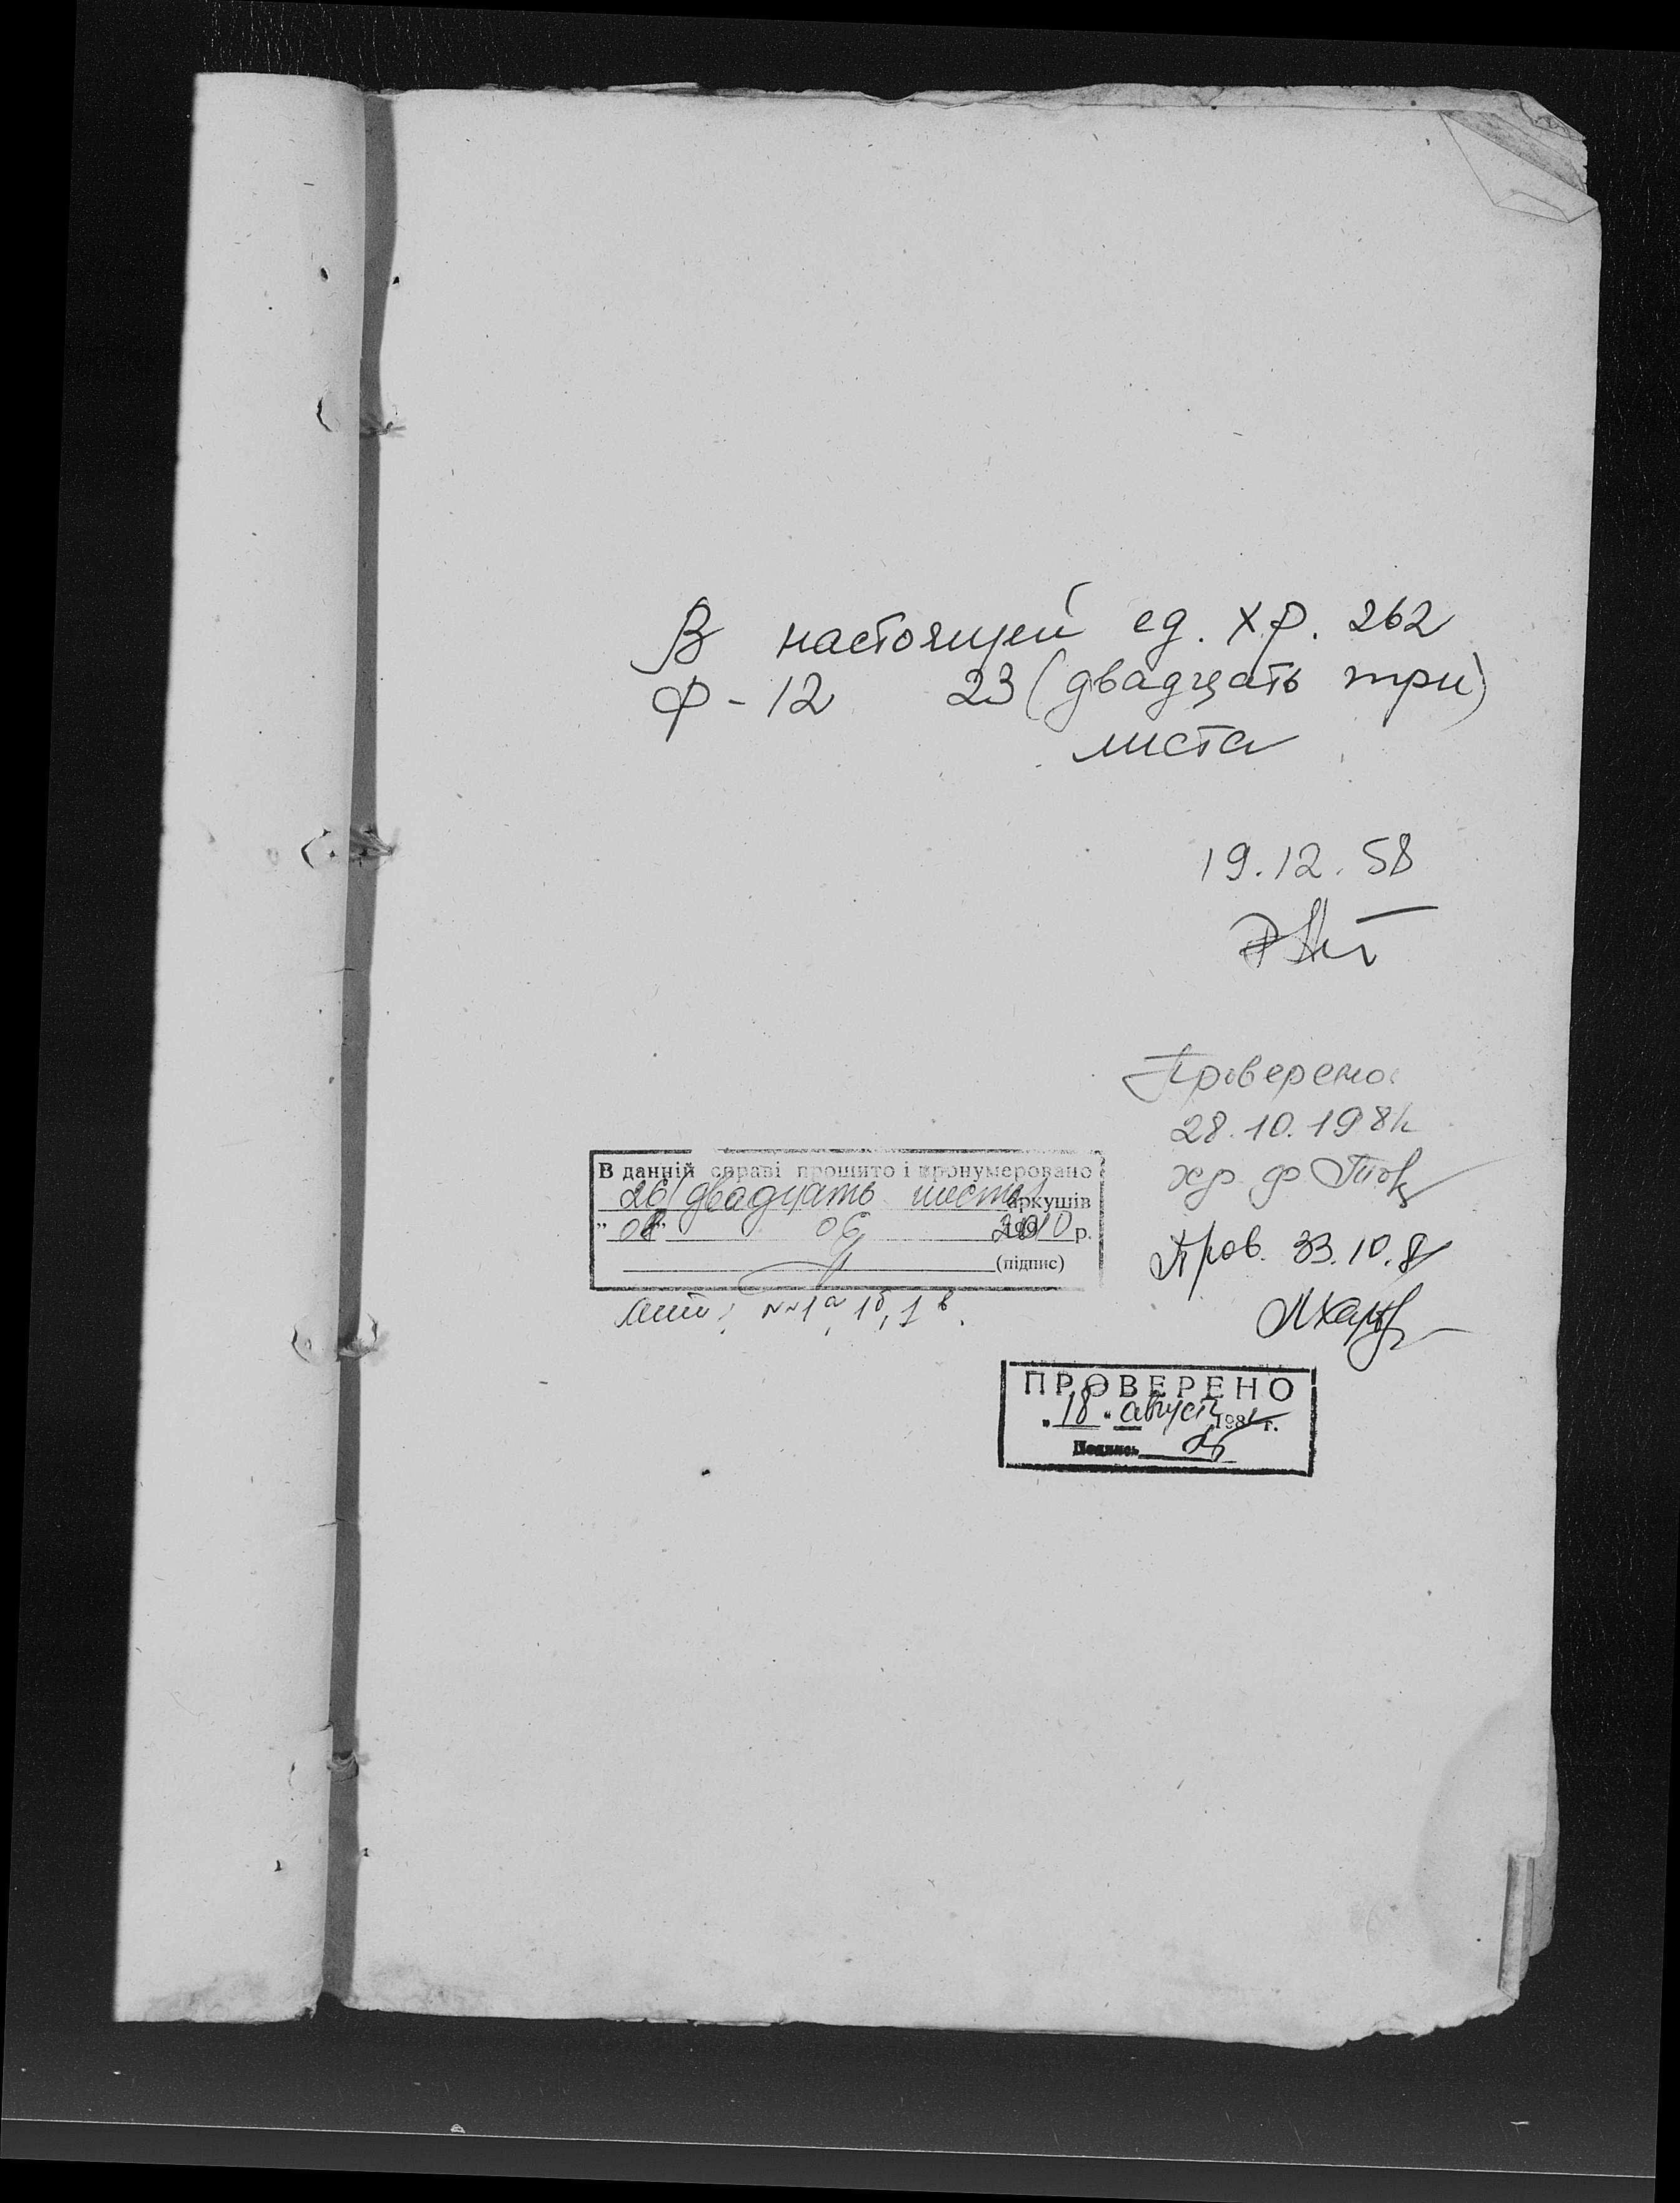 В настоящей ед. хр. 262
Ф-12 23 (двадцать три)
листа
19.12.58
Проверено
28.10.198
хр. ф.
В данній справі прошито і пронумеровано
26 (двадцать шесть) аркушів
06 2010 р.
(підпис)
лит: №№ 1а, 1б, 1в.
Пров. 10.8
ПРОВЕРЕНО
"18" август 198 г.
Подпись